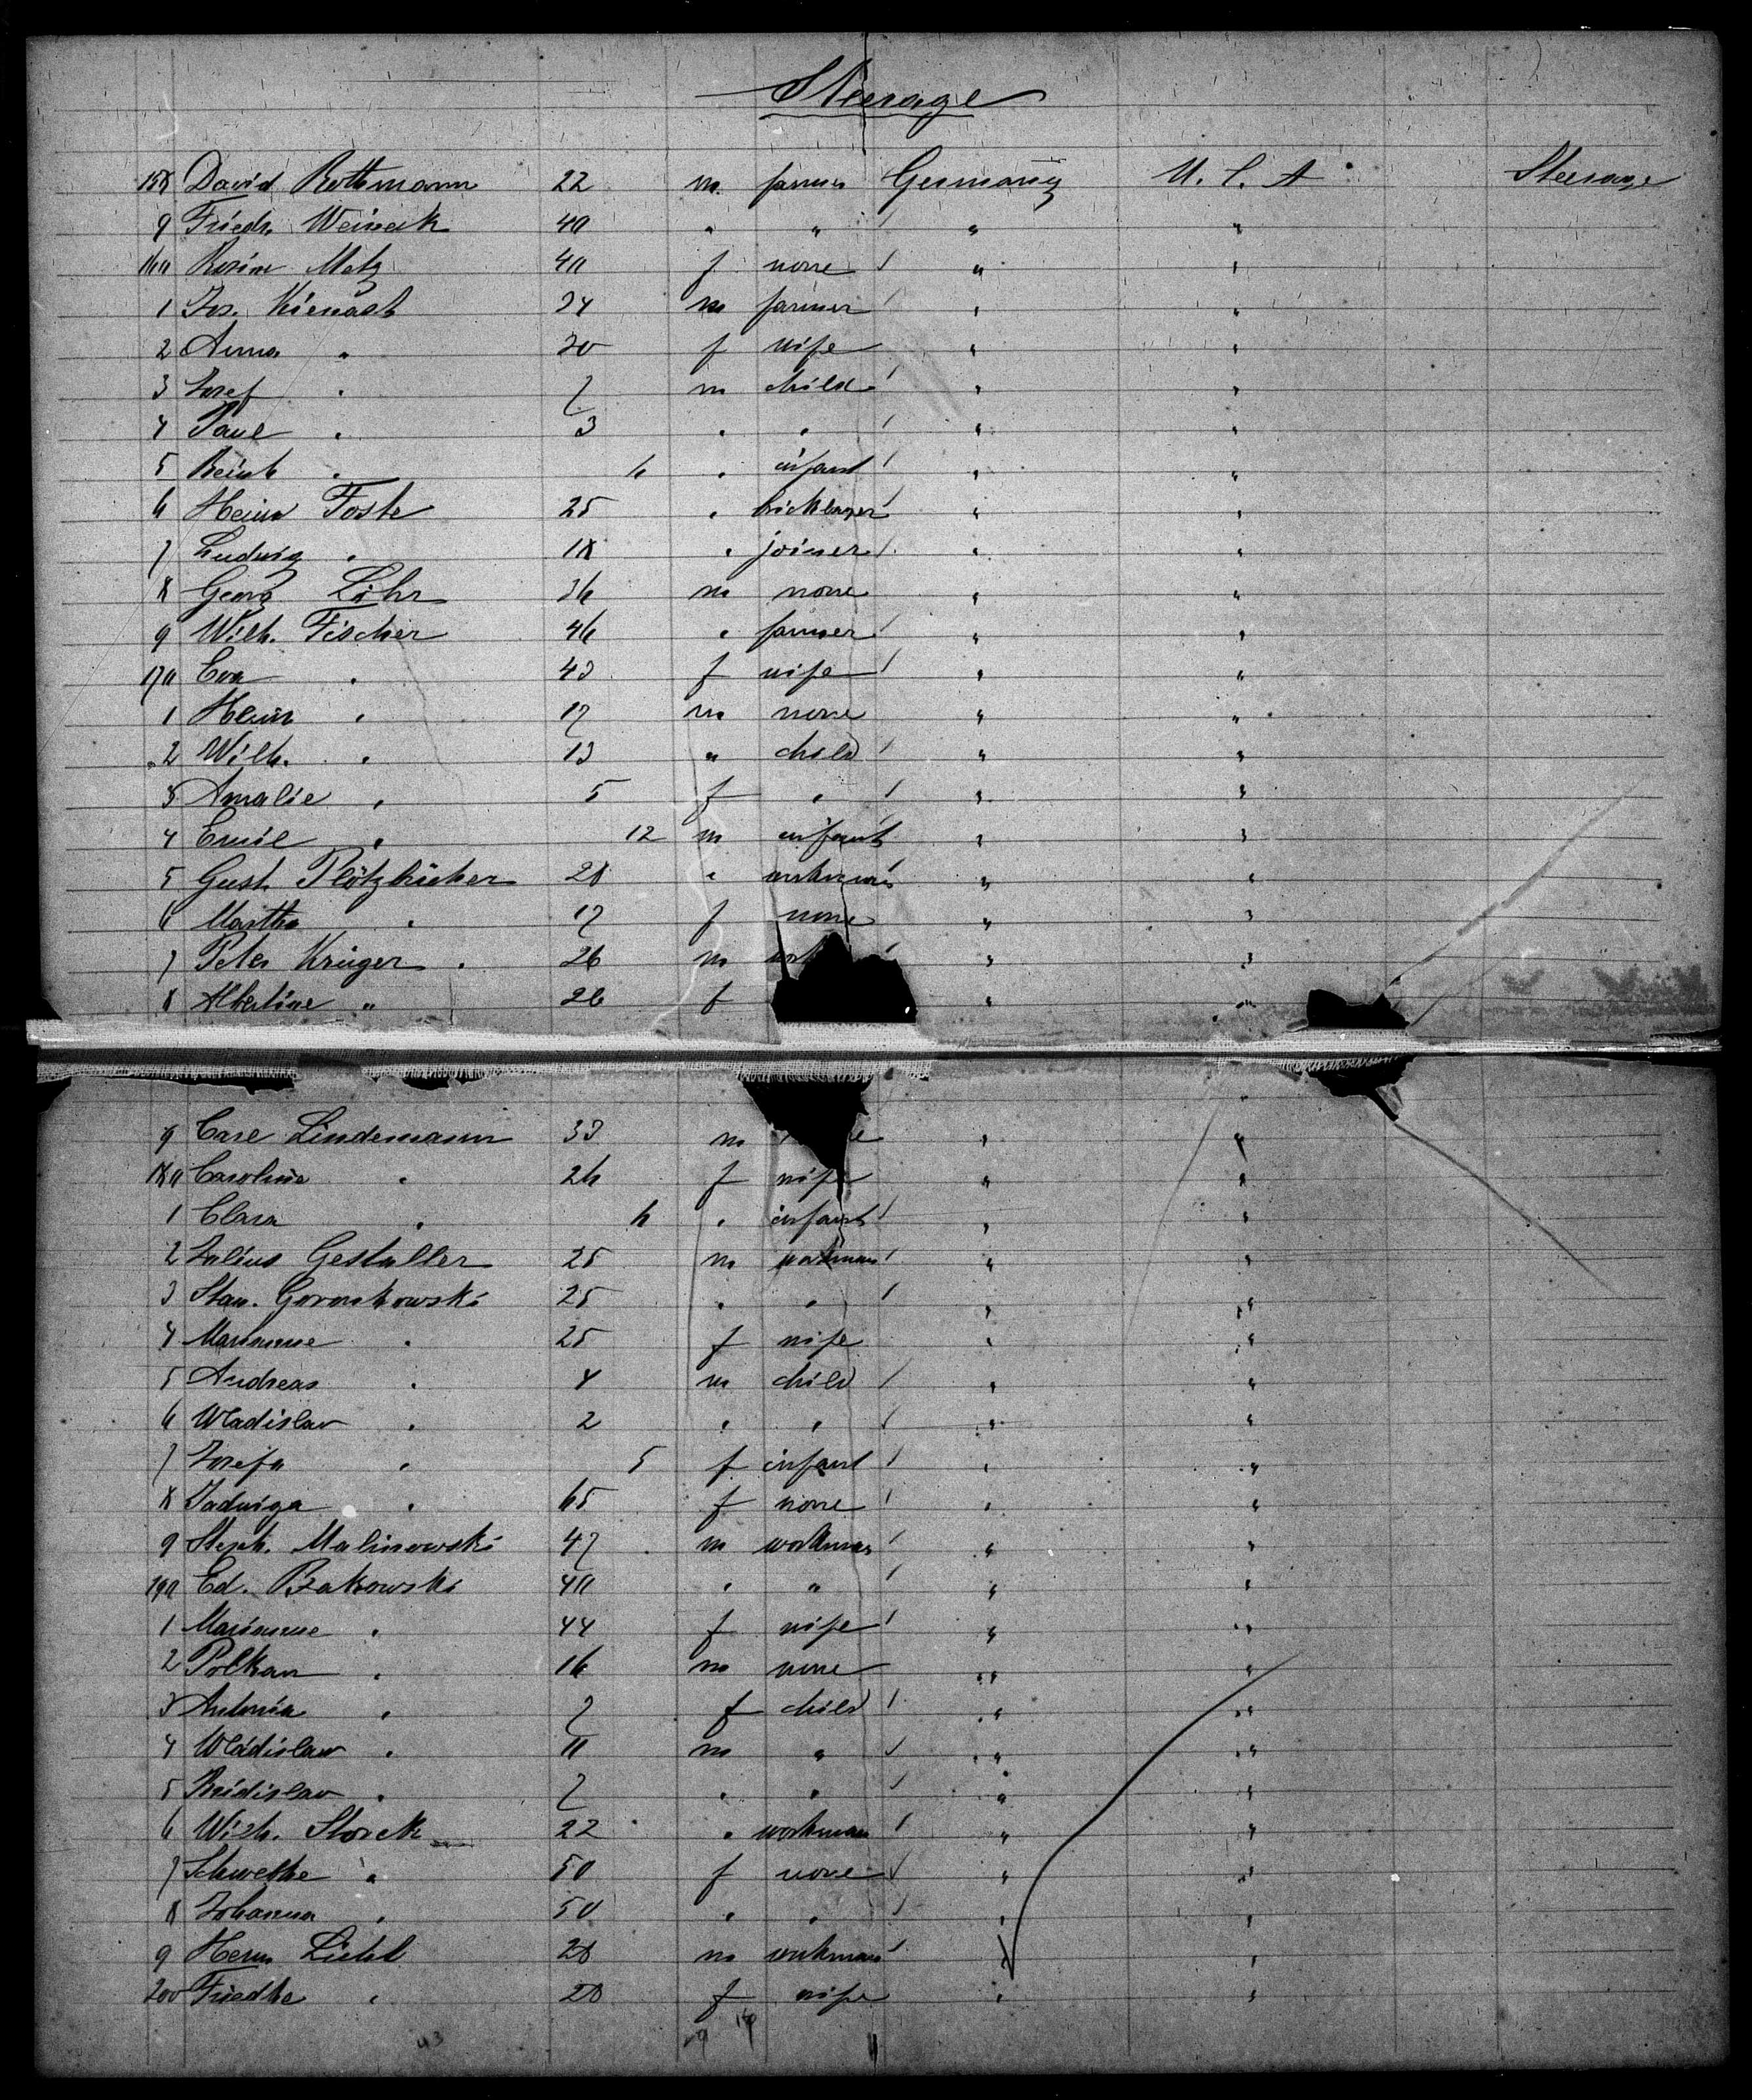 Steerage
158 David Rothmann 22 m. farmer Germany U. S. A Steerage
9 Friedr. Weineck 40 " " " "
160 Rosine Metz 40 f none " "
1 Jos. Kienast 34 m farmer " "
2 Anna " 30 f wife " "
3 Josef " 7 m child " "
4 Paul " 3 " " " "
5 Reinh " 6 " infant " "
6 Heinr Foste 25 " bricklayer " "
7 Ludwig " 18 " joiner " "
8 Georg Löhr 36 m none " "
9 Wilh. Fischer 46 " farmer " "
170 Eva " 43 f wife " "
1 Heinr " 17 m none " "
2 Wilh. " 13 " child " "
3 Amalie " 5 f " " "
4 Emil " 12 m infant " "
5 Gust. 28 " workman " "
6 Martha " 17 f none " "
7 Peter Krüger 26 m " "
8 Albertine " 26 f " "
9 Carl Lindemann 33 m " "
180 Caroline " 26 f wife " "
1 Clara " 6 " infant " "
2 Julius Gestaller 25 m workman " "
3 Stan. Goronkowski 25 " " " "
4 Marianne " 25 f wife " "
5 Andreas " 4 m child " "
6 Wladislav " 2 " " " "
7 Josefa " 5 f infant " "
8 Jadwiga " 65 f none " "
9 Steph. Malinowski 47 m workman " "
190 Ed. 40 " " " "
1 Marianne " 44 f wife " "
2 Polkan " 16 m none " "
3 Antonia " 7 f child " "
4 Wladislaw " 11 m " " "
5 " 7 " " " "
6 Wilh. Storck 22 " workman " "
7 " 50 f none " "
8 Johanna " 50 " " " "
9 Herm Liebl 28 m workman " "
200 Friedke " 28 f wife " "